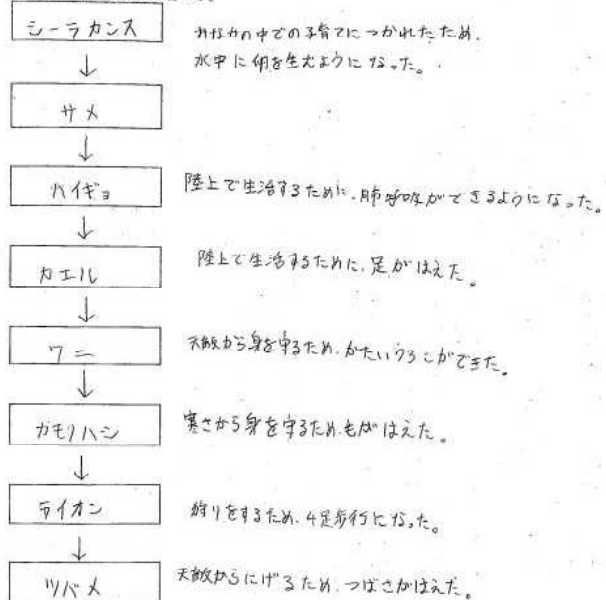 シーラカンス
おなかの中での子育てにつかれたため、
水中に卵を生むようになった。
サメ
ハイギョ
陸上で生活するために、肺呼吸ができるようになった。
カエル
陸上で生活するために、足がはえた。
ワニ
天敵から身を守るため、かたいうろこができた。
カモノハシ
寒さから身を守るため、毛がはえた。
ライオン
狩りをするため、4足歩行になった。
ツバメ
天敵からにげるため、つばさがはえた。